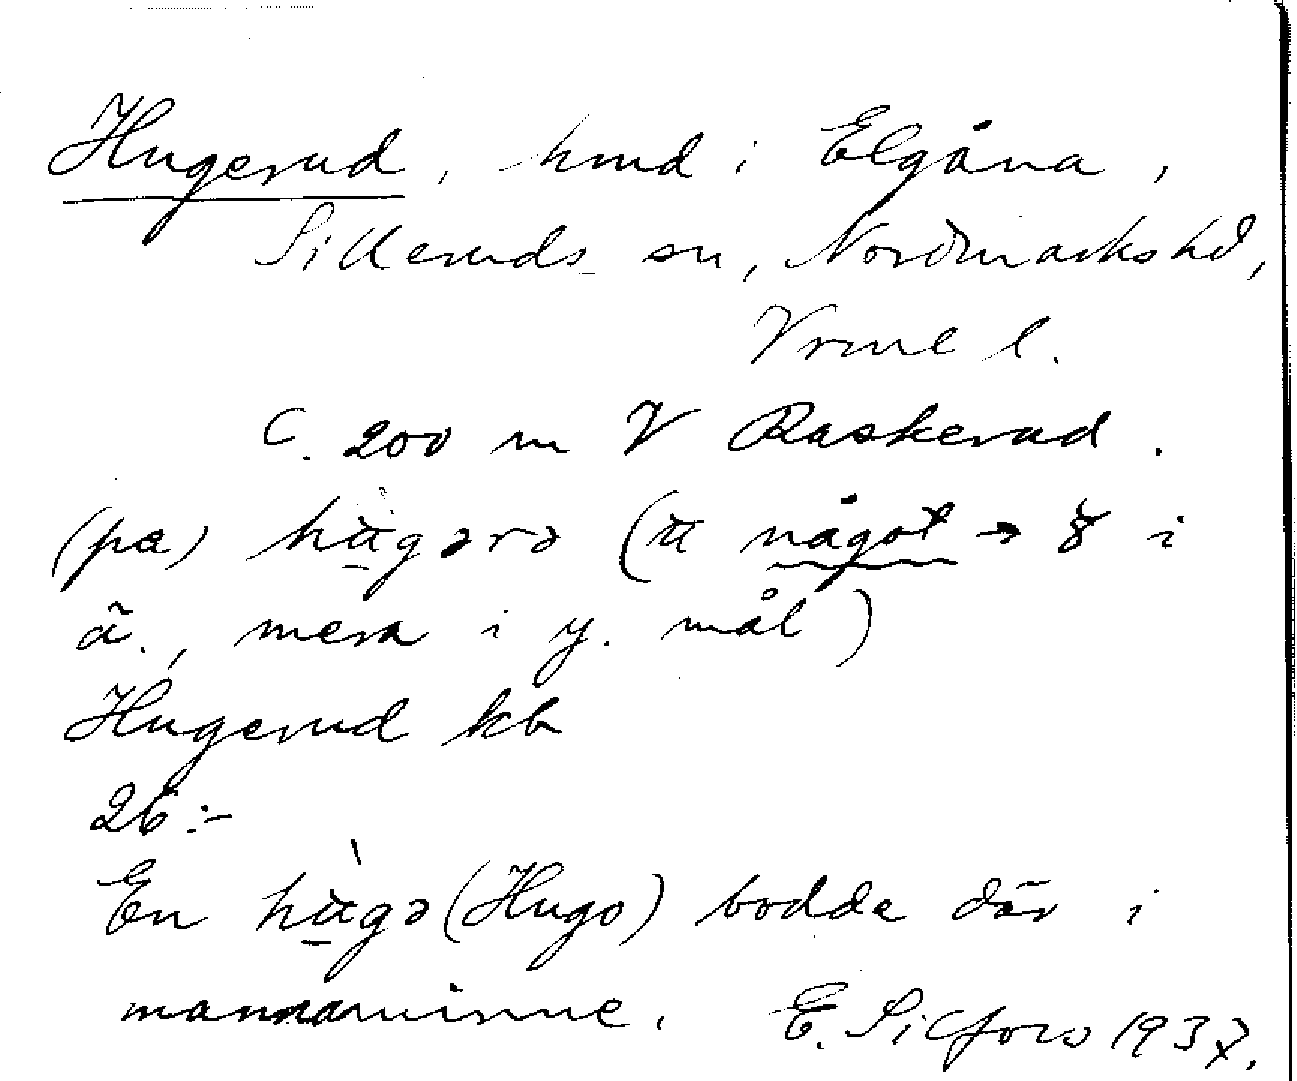 Hugerud, hmd i Elgåna,
Silleruds sn, Nordmarks hd,
Vrml l.
C. 200 m V Raskerud.
(pa) hùgərə (u något → i
ä., mera i y. mål)
Hugerud kb
26:-
En hùgə (Hugo) bodde där i
mannaminne. E. Silfors 1937.